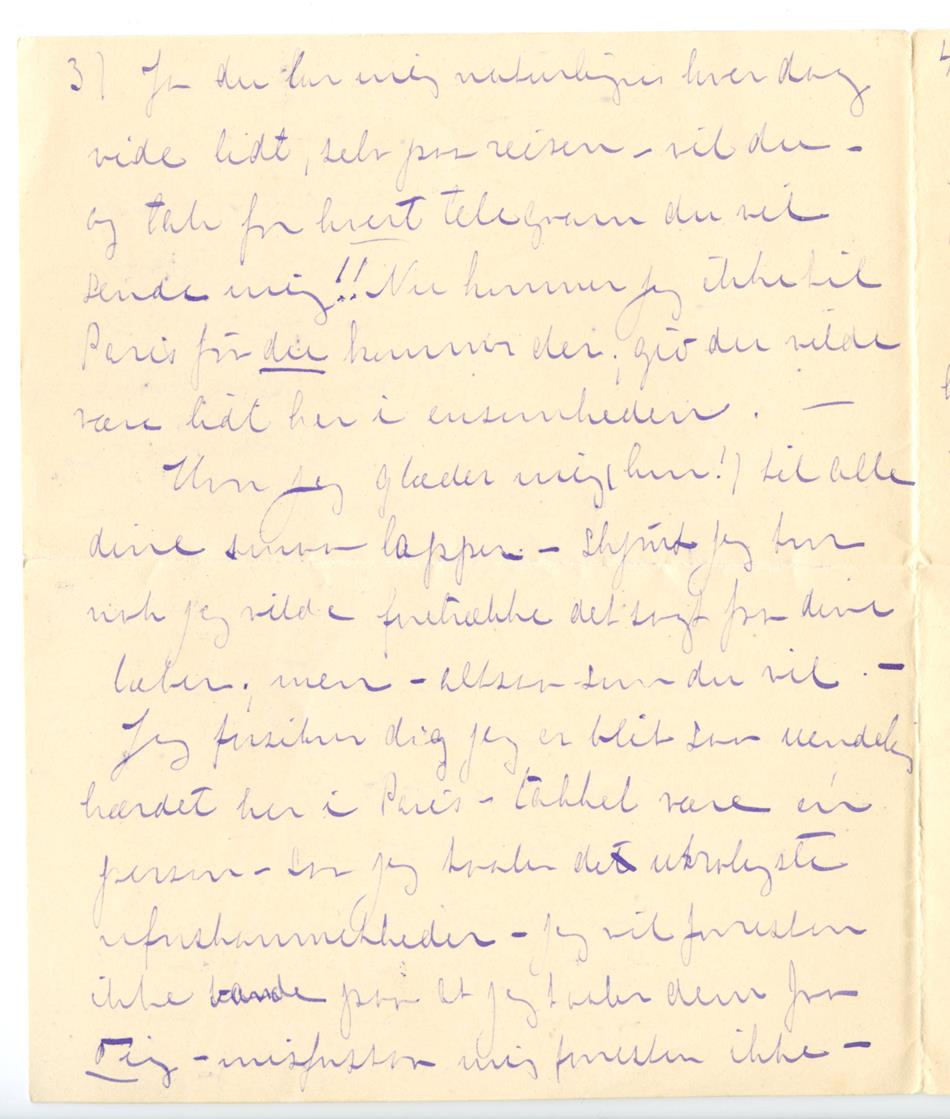 3) Ja du lar mig naturligvis hver dag
vide lidt, selv paa reisen – vil du –
og tak for hvert telegram du vil
sende mig!! Nu kommer jeg ikke til
Paris før du kommer der, gid du vilde
være lidt her i ensomheden. –
Hvor jeg glæder mig (hm!) til alle
dine smaa lapper – skjønt jeg tror
nok jeg vilde foretrække det sagt fra dine
læber, men – altsaa som du vil. –
Jeg forsikrer dig jeg er blit saa uendelig
hærdet her i Paris – takket være én
person – saa jeg taaler det utroligste
uforskammetheder – jeg vil forresten
ikke bande paa at jeg taaler dem fra
Dig – misforstaa mig forresten ikke –
4